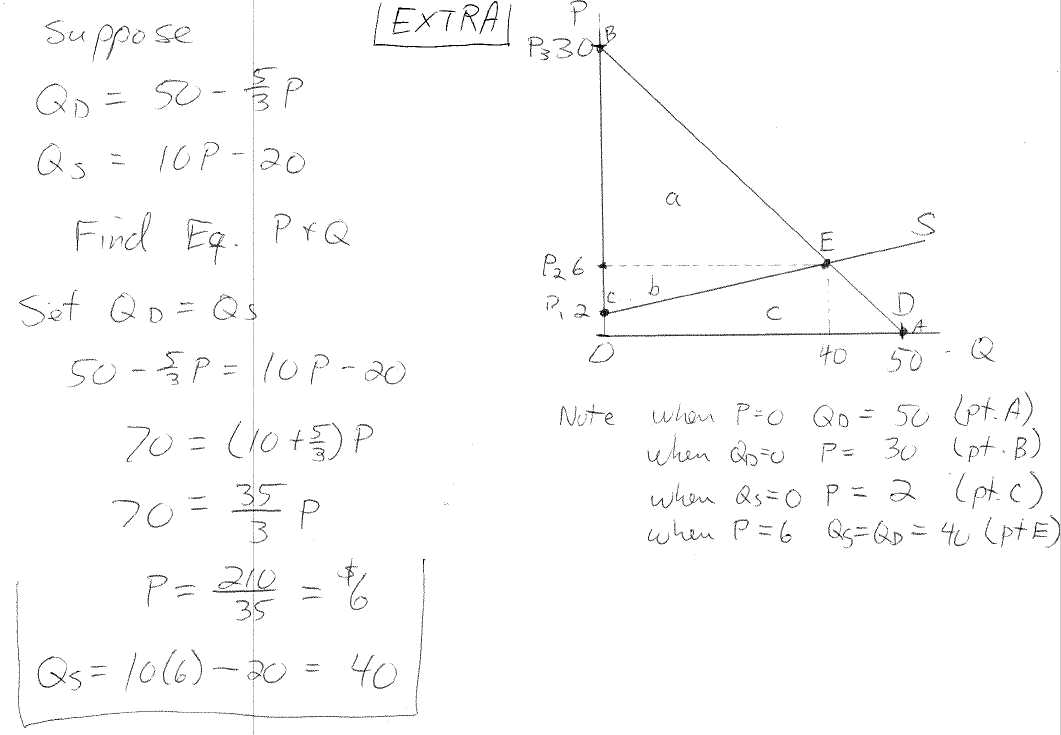 Suppose
Q_D = 50 - 5/3 P
Q_S = 10P - 20
Find Eq. P + Q
Set Q_D = Q_S
50 - 5/3 P = 10P - 20
70 = (10 + 5/3) P
70 = 35/3 P
P = 210/35 = $6
Q_S = 10(6) - 20 = 40
EXTRA
P
P_3 30 B
a
S
E
P_2 6
b
P_1 2 c
c
D
A
0
40
50
Q
Note when P=0 Q_D = 50 (pt. A)
when Q_D=0 P = 30 (pt. B)
when Q_S=0 P = 2 (pt. C)
when P=6 Q_S=Q_D=40 (pt E)